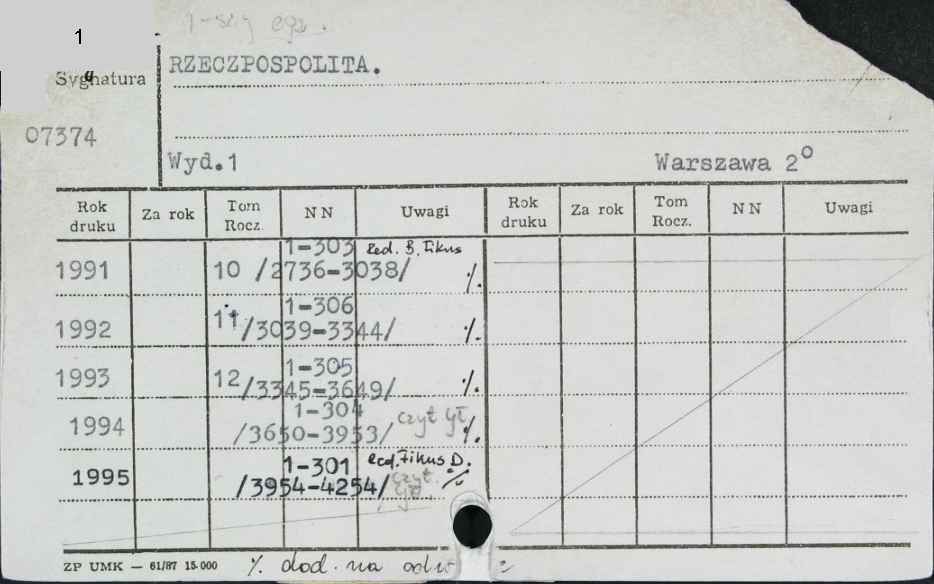 1-szy egz.
1
Sygnatura
RZECZPOSPOLITA.
07374
Wyd.1 Warszawa 2°
Rok druku Za rok Tom Rocz. NN Uwagi Rok druku Za rok Tom Rocz. NN Uwagi
1-303 Red. B. Fikus
1991 10 /2736-3038/ ./.
1-306
1992 11 /3039-3344/ ./.
1-305
1993 12 /3345-3649/ ./.
1-304 czyt. Gł.
1994 /3650-3953/ ./.
1-301 red. Fikus D.
1995 /3954-4254/ czyt. Gł. ./.
ZP UMK — 61/87 15.000 ./. dod. na